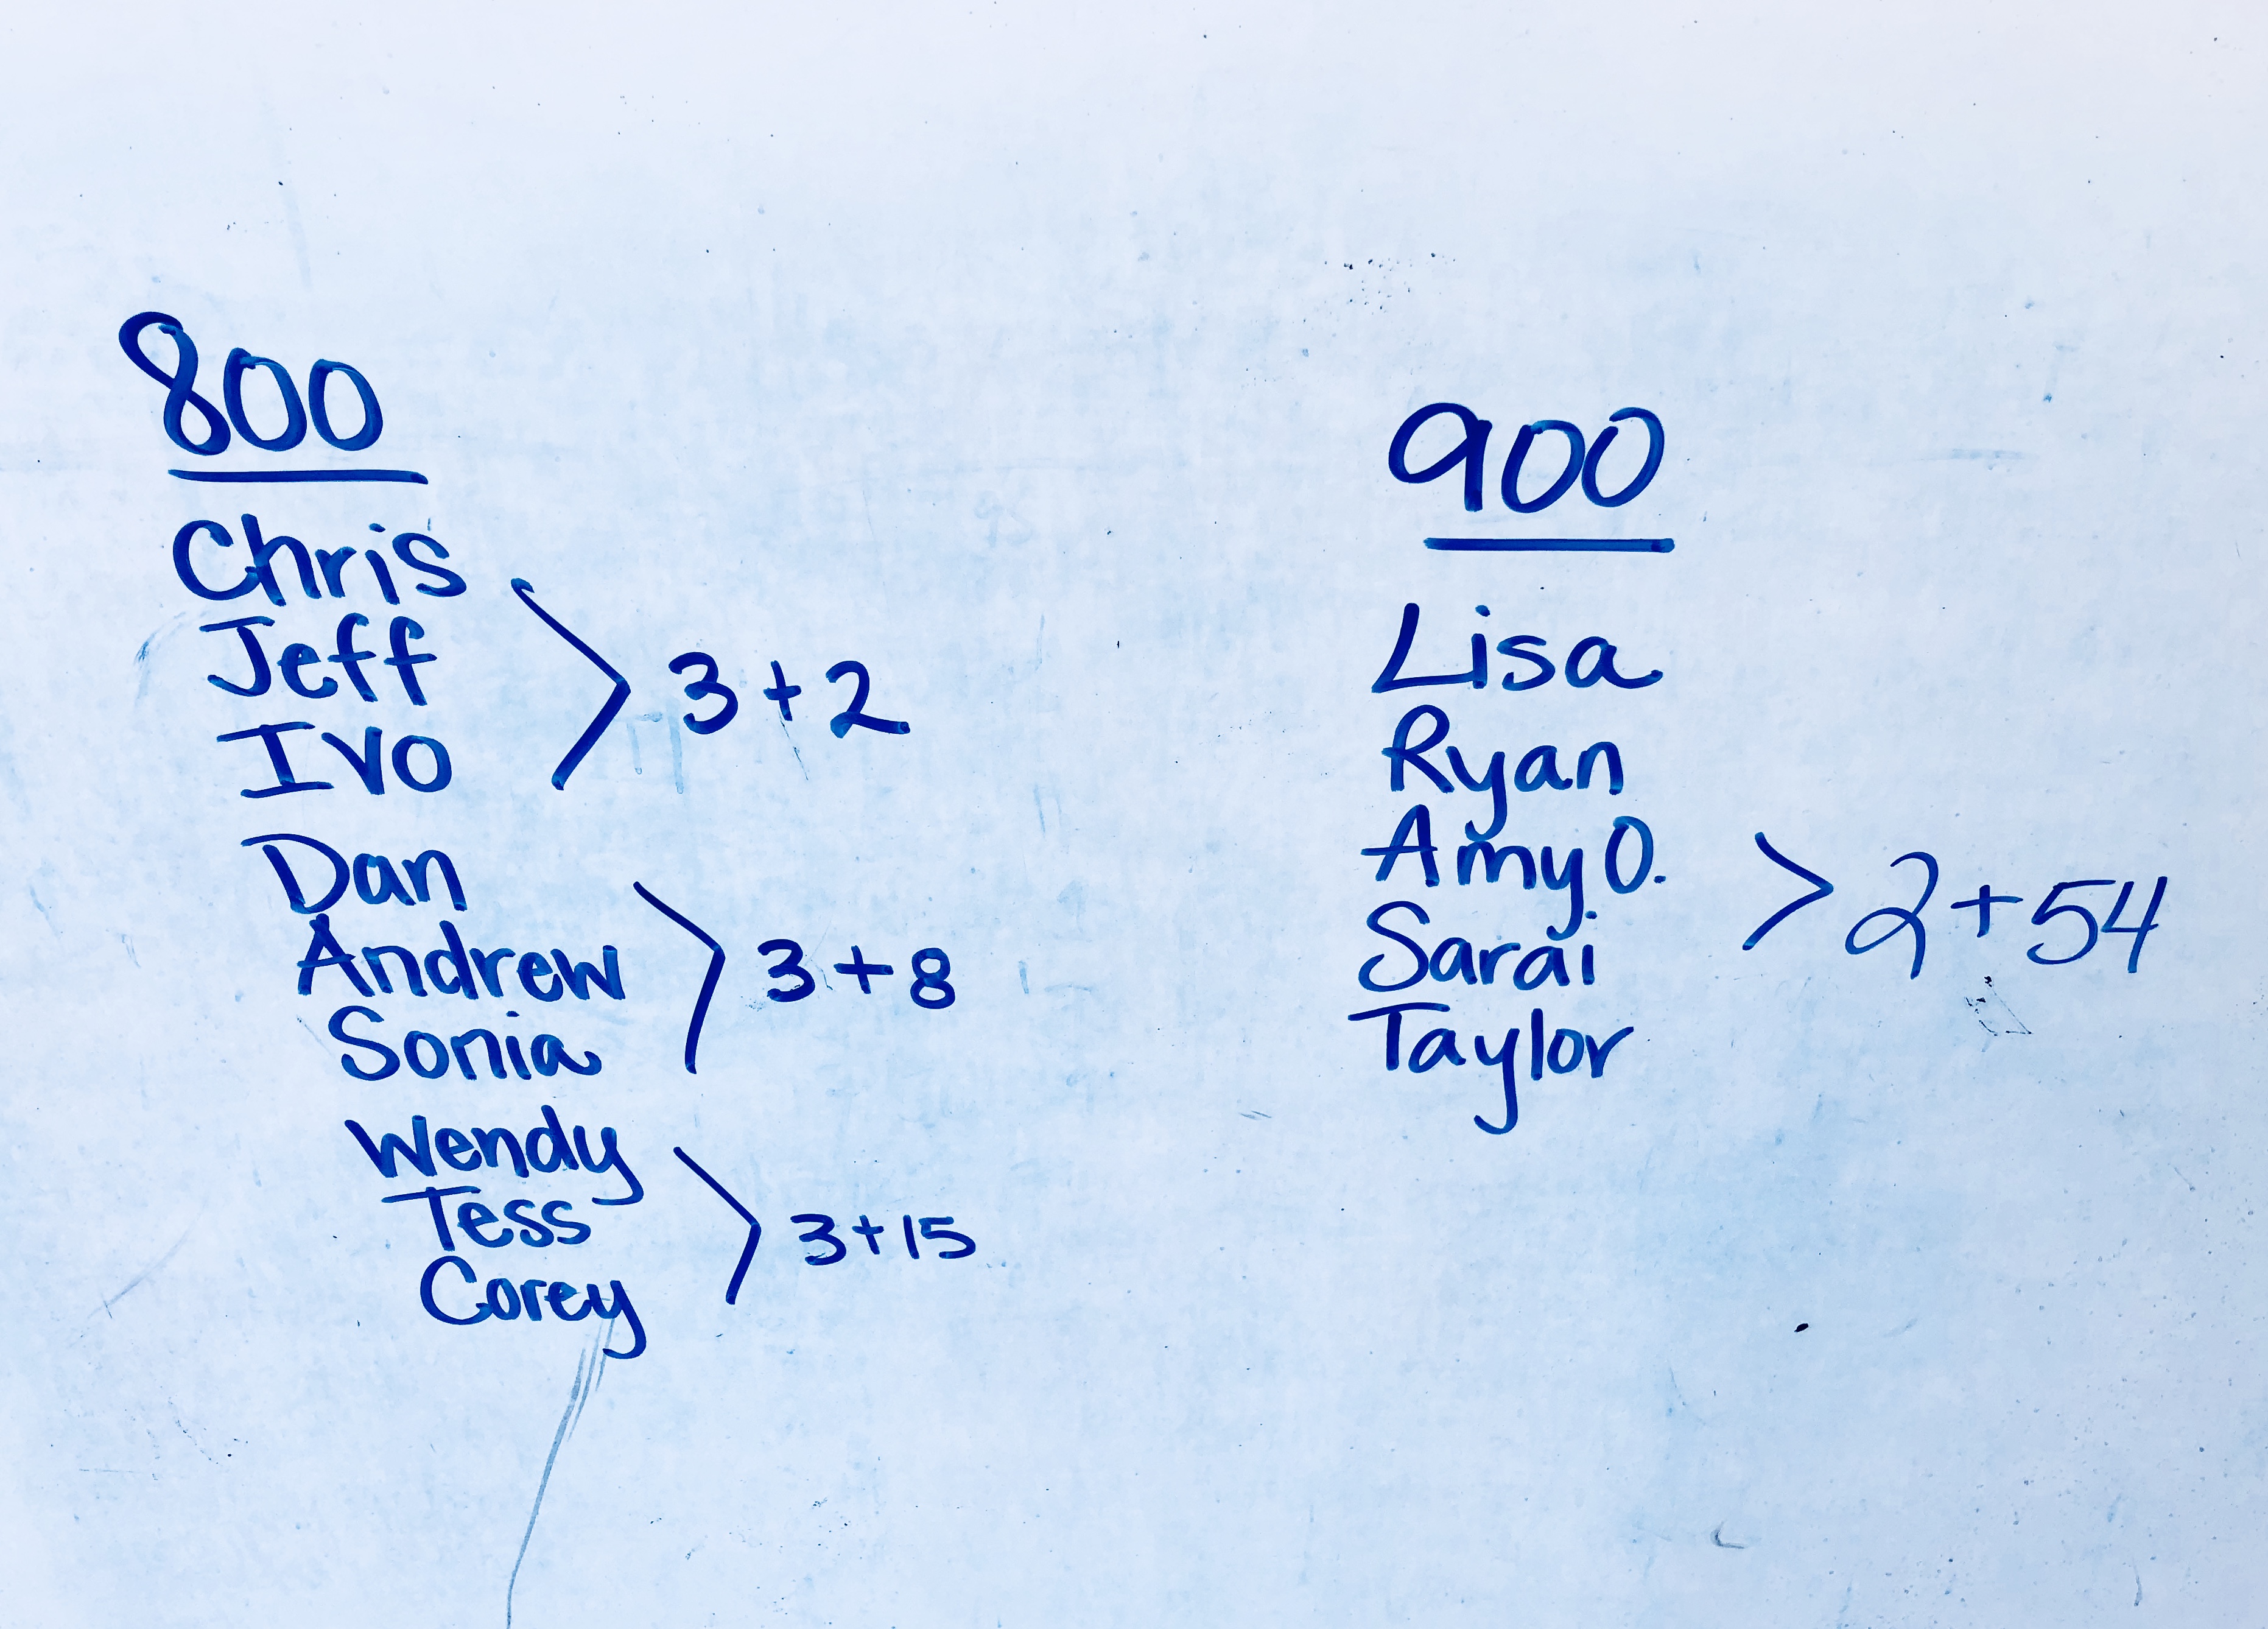 800
Chris
Jeff
Ivo
3+2
Dan
Andrew
Sonia
3+8
Wendy
Tess
Corey
3+15
900
Lisa
Ryan
Amy O.
Sarai
Taylor
2+54